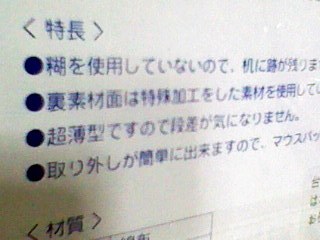 〈 特長 〉
●糊を使用していないので、机に跡が残りま
●裏素材面は特殊加工をした素材を使用してい
●超薄型ですので段差が気になりません。
●取り外しが簡単に出来ますので、マウスパッ
〈 材質 〉